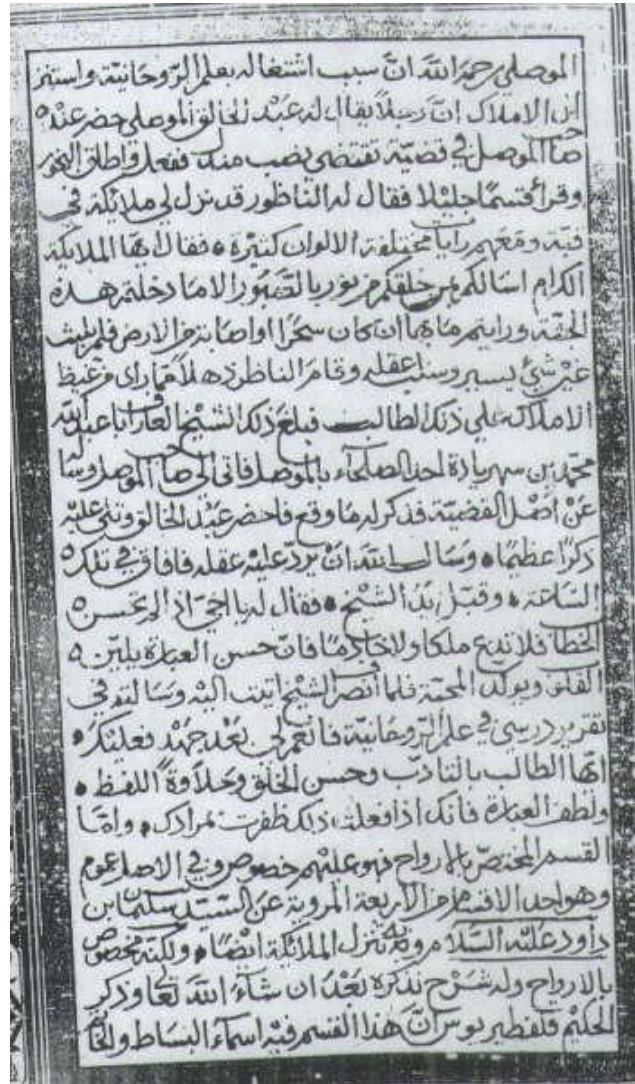 الموصلي رحمه الله ان سبب اشتغاله بعلم الروحانية واستنز
ال الاملاك ان رجلا يقال له عبد الخالق الموصلي حضر عنده
صاحب الموصل في قضية تقتضي نصب مندل ففعل واطلق البخور
وقرأ قسما جليلا فقال له الناظور قد نزل لي ملائكة في
قبة ومعهم رايات مختلفة الالوان كثيرة فقال ايها الملايكة
الكرام اسالكم بمن خلقكم من نور بالصور الاما دخلتم هذه
الجثة ورايتم ما بها ان كان سحرا او اصابة من الارض فلم يلبث
غير شيء يسير وسلب عقله وقام الناظر ذهلا مما راى من غيظ
الاملاك على ذلك الطالب فبلغ ذلك الشيخ العارف ابا عبد الله
محمد بن احد الصلحاء بالموصل فاتى الى صاحب الموصل وساله
عن اصل القضية فذكر له ما وقع فاحضر عبد الخالق وتلى عليه
ذكرا عظيما وسال الله ان يرد عليه عقله فافاق في تلك
الساعة وقبل يد الشيخ فقال له يا اخي اذا لم تحسن
الخطاب فلا تدع ملكا ولا خادما فان حسن العبارة يلين
القلوب ويولد المحبة فلما انصرف الشيخ اتيت اليه وسالته في
تقرير درسي في علم الروحانية فانعم لي بعد جهد فعليك
ايها الطالب بالتادب وحسن الخلق وحلاوة اللفظ
ولطف العبارة فانك اذا فعلت ذلك ظفرت بمرادك واما
القسم المختص بالارواح فهو عليهم خصوص وفي الاصل عموم
وهو احد الاقسام الاربعة المروية عن السيد سليمان بن
داود عليه السلام وبه تنزل الملائكة ايضا ولكنه مخصوص
بالارواح وله شرح نذكره بعد ان شاء الله تعالى وذكر
الحكيم فلفطيريوس ان هذا القسم فيه اسماء البساط والخاتم